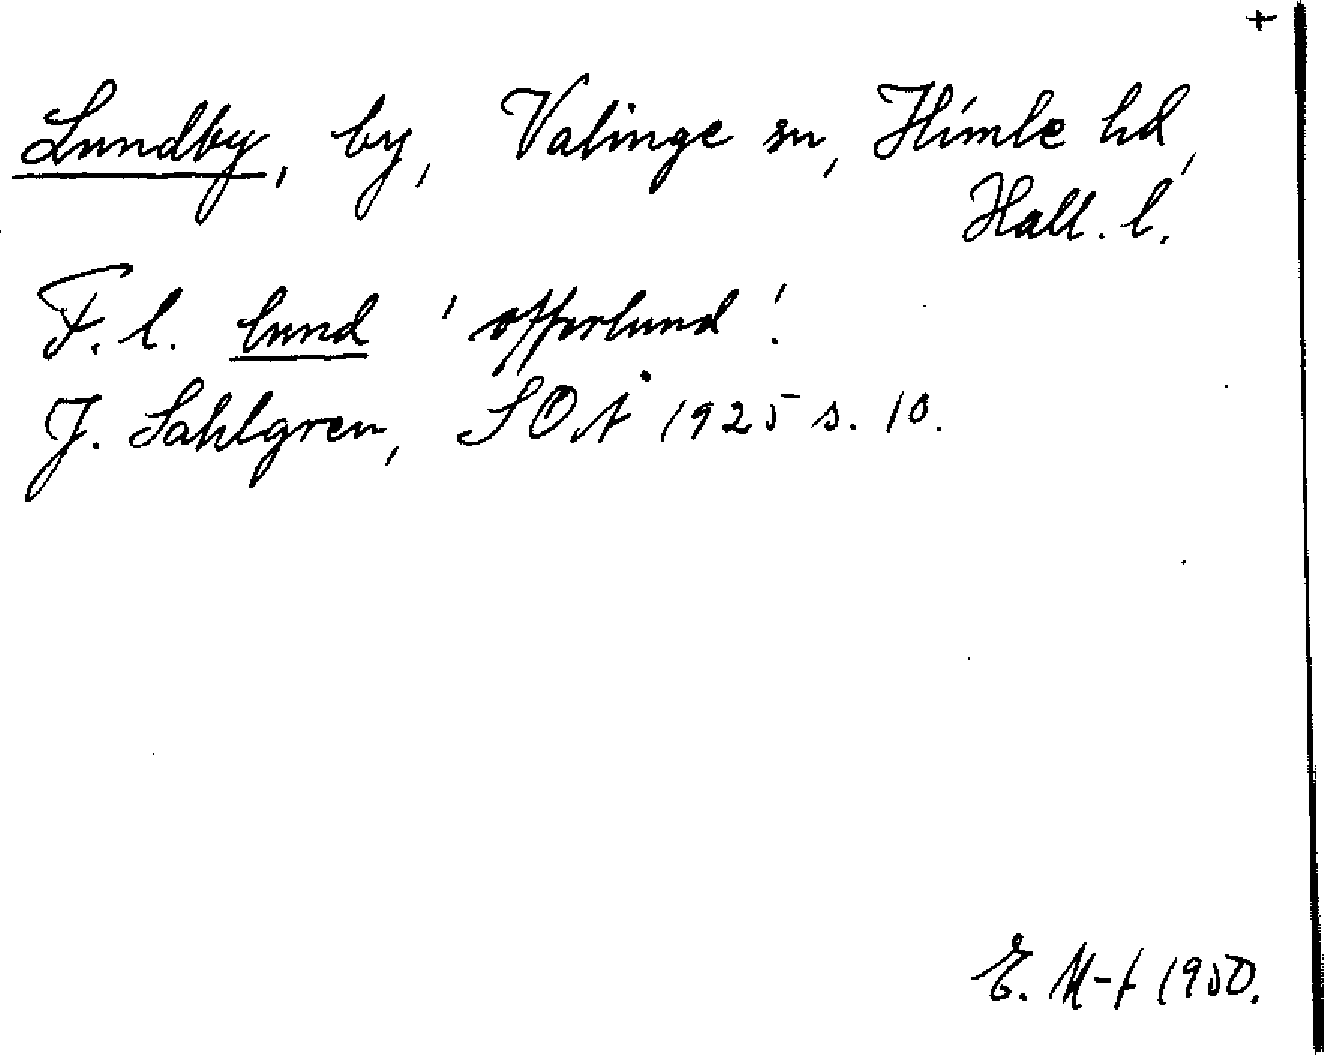 +
Lundby, by, Valinge sn, Himle hd,
Hall. l.
F. l. lund 'offerlund'.
J. Sahlgren, SOÅ 1925 s. 10.
E. M-f 1950.